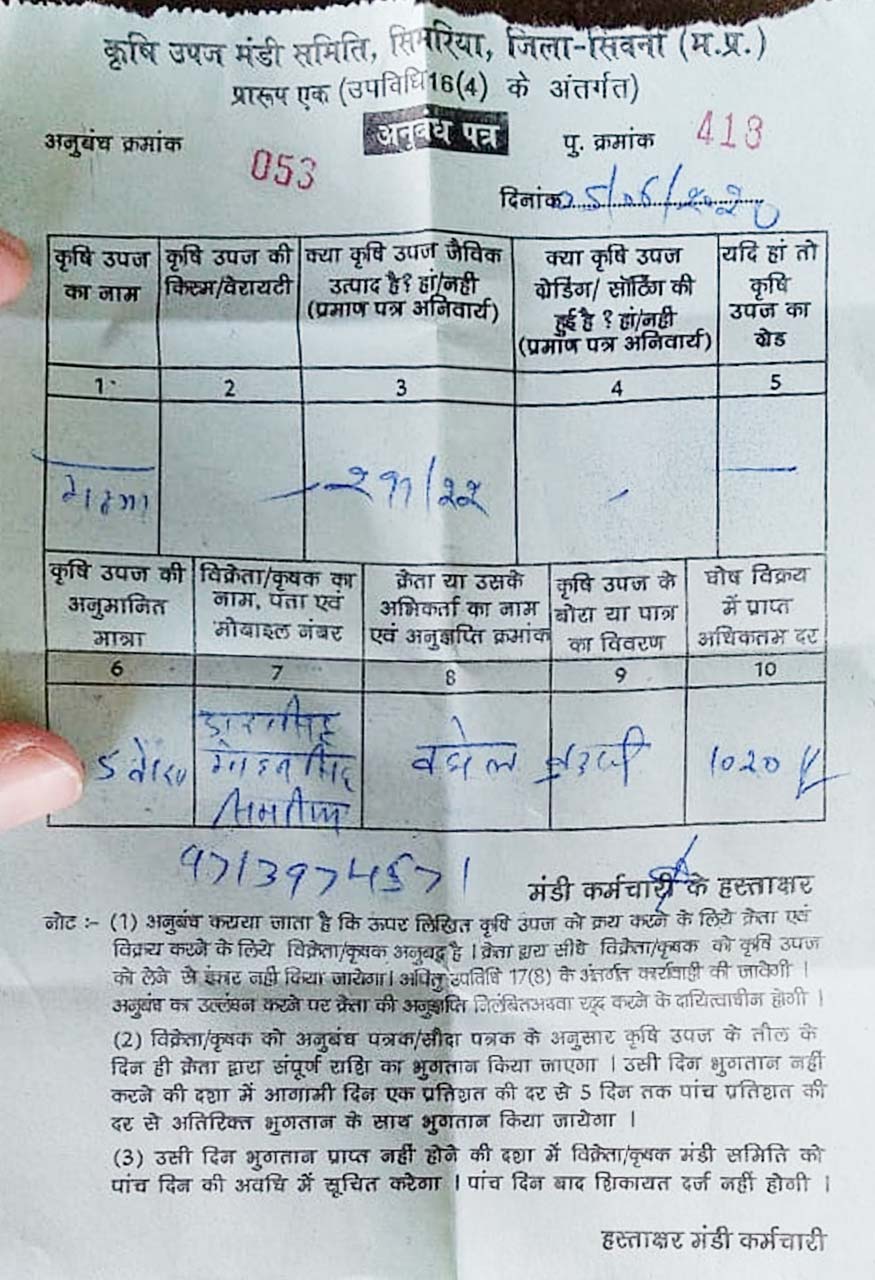 कृषि उपज मंडी समिति, सिमरिया, जिला-सिवनी (म.प्र.)
प्रारूप एक (उपविधि 16(4) के अंतर्गत)
अनुबंध क्रमांक 053 अनुबंध पत्र पु. क्रमांक 413
दिनांक 25/06/2020
कृषि उपज का नाम
कृषि उपज की किस्म/वेरायटी
क्या कृषि उपज जैविक उत्पाद है? हां/नही (प्रमाण पत्र अनिवार्य)
क्या कृषि उपज ग्रेडिंग/ सॉर्टिंग की हुई है ? हां/नही (प्रमाण पत्र अनिवार्य)
यदि हां तो कृषि उपज का ग्रेड
1 2 3 4 5
मक्का
कृषि उपज की अनुमानित मात्रा
विक्रेता/कृषक का नाम, पता एवं मोबाइल नंबर
क्रेता या उसके अभिकर्ता का नाम एवं अनुज्ञप्ति क्रमांक
कृषि उपज के बोरा या पात्र का विवरण
घोष विक्रय में प्राप्त अधिकतम दर
6 7 8 9 10
5 बघेल 1020
9713974571
मंडी कर्मचारी के हस्ताक्षर
नोट :- (1) अनुबंध कराया जाता है कि ऊपर लिखित कृषि उपज को क्रय करने के लिये क्रेता एवं
विक्रय करने के लिये विक्रेता/कृषक अनुबद्ध है । क्रेता द्वारा सीधे विक्रेता/कृषक को कृषि उपज
को लेने से इंकार नही किया जायेगा। अपितु उपविधि 17(8) के अंतर्गत कार्यवाही की जावेगी ।
अनुबंध का उल्लंघन करने पर क्रेता की अनुज्ञप्ति निलंबित अथवा रद्द करने के दायित्वाधीन होगी ।
(2) विक्रेता/कृषक को अनुबंध पत्रक/सौदा पत्रक के अनुसार कृषि उपज के तौल के
दिन ही क्रेता द्वारा संपूर्ण राशि का भुगतान किया जाएगा । उसी दिन भुगतान नहीं
करने की दशा में आगामी दिन एक प्रतिशत की दर से 5 दिन तक पांच प्रतिशत की
दर से अतिरिक्त भुगतान के साथ भुगतान किया जायेगा ।
(3) उसी दिन भुगतान प्राप्त नहीं होने की दशा में विक्रेता/कृषक मंडी समिति को
पांच दिन की अवधि में सूचित करेगा । पांच दिन बाद शिकायत दर्ज नहीं होगी ।
हस्ताक्षर मंडी कर्मचारी